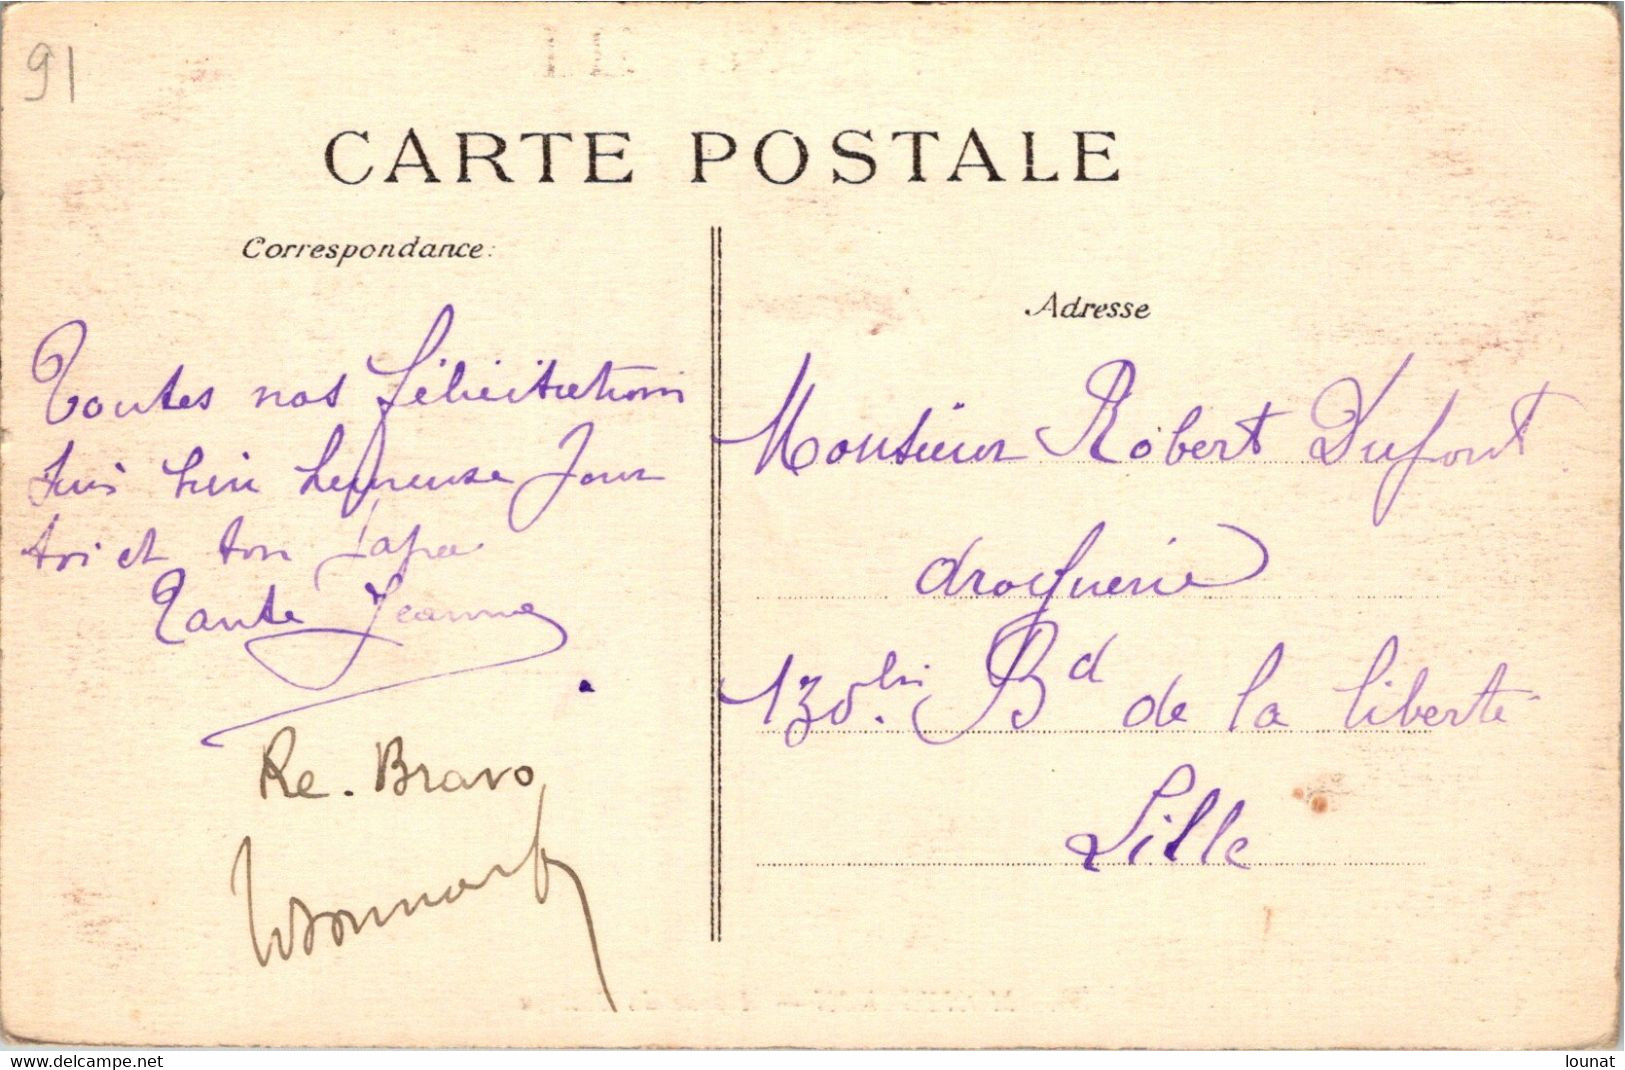 91
CARTE POSTALE
Correspondance:
Toutes nos félicitations
suis bien heureuse pour
toi et ton papa
Tante Jeanne
Re. Bravo
Adresse
Monsieur Robert Dufont
droguerie
130 bis. Bd de la liberté
Lille
www.delcampe.net
lounat